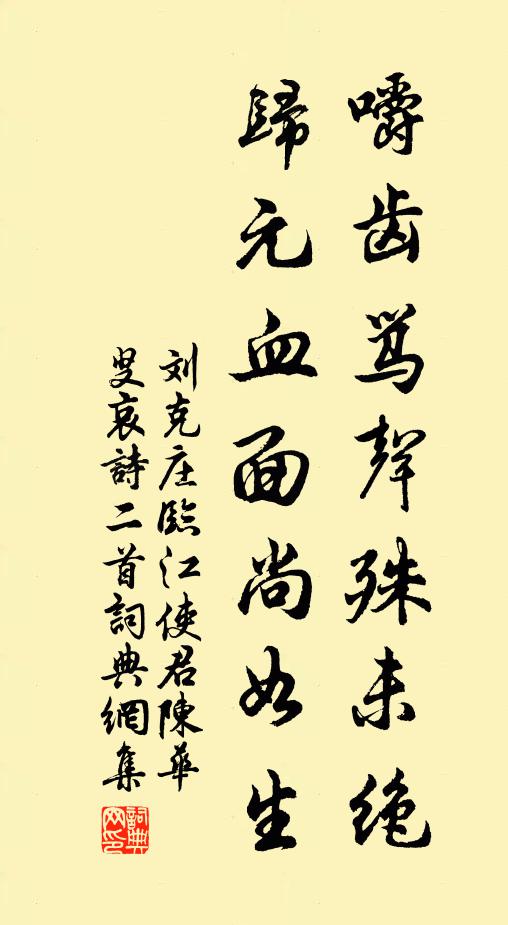 嚼齿骂聲殊未绝
歸元血面尚如生
刘克庄臨江使君陳華
叟哀詩二首詞典網集
詞典網印